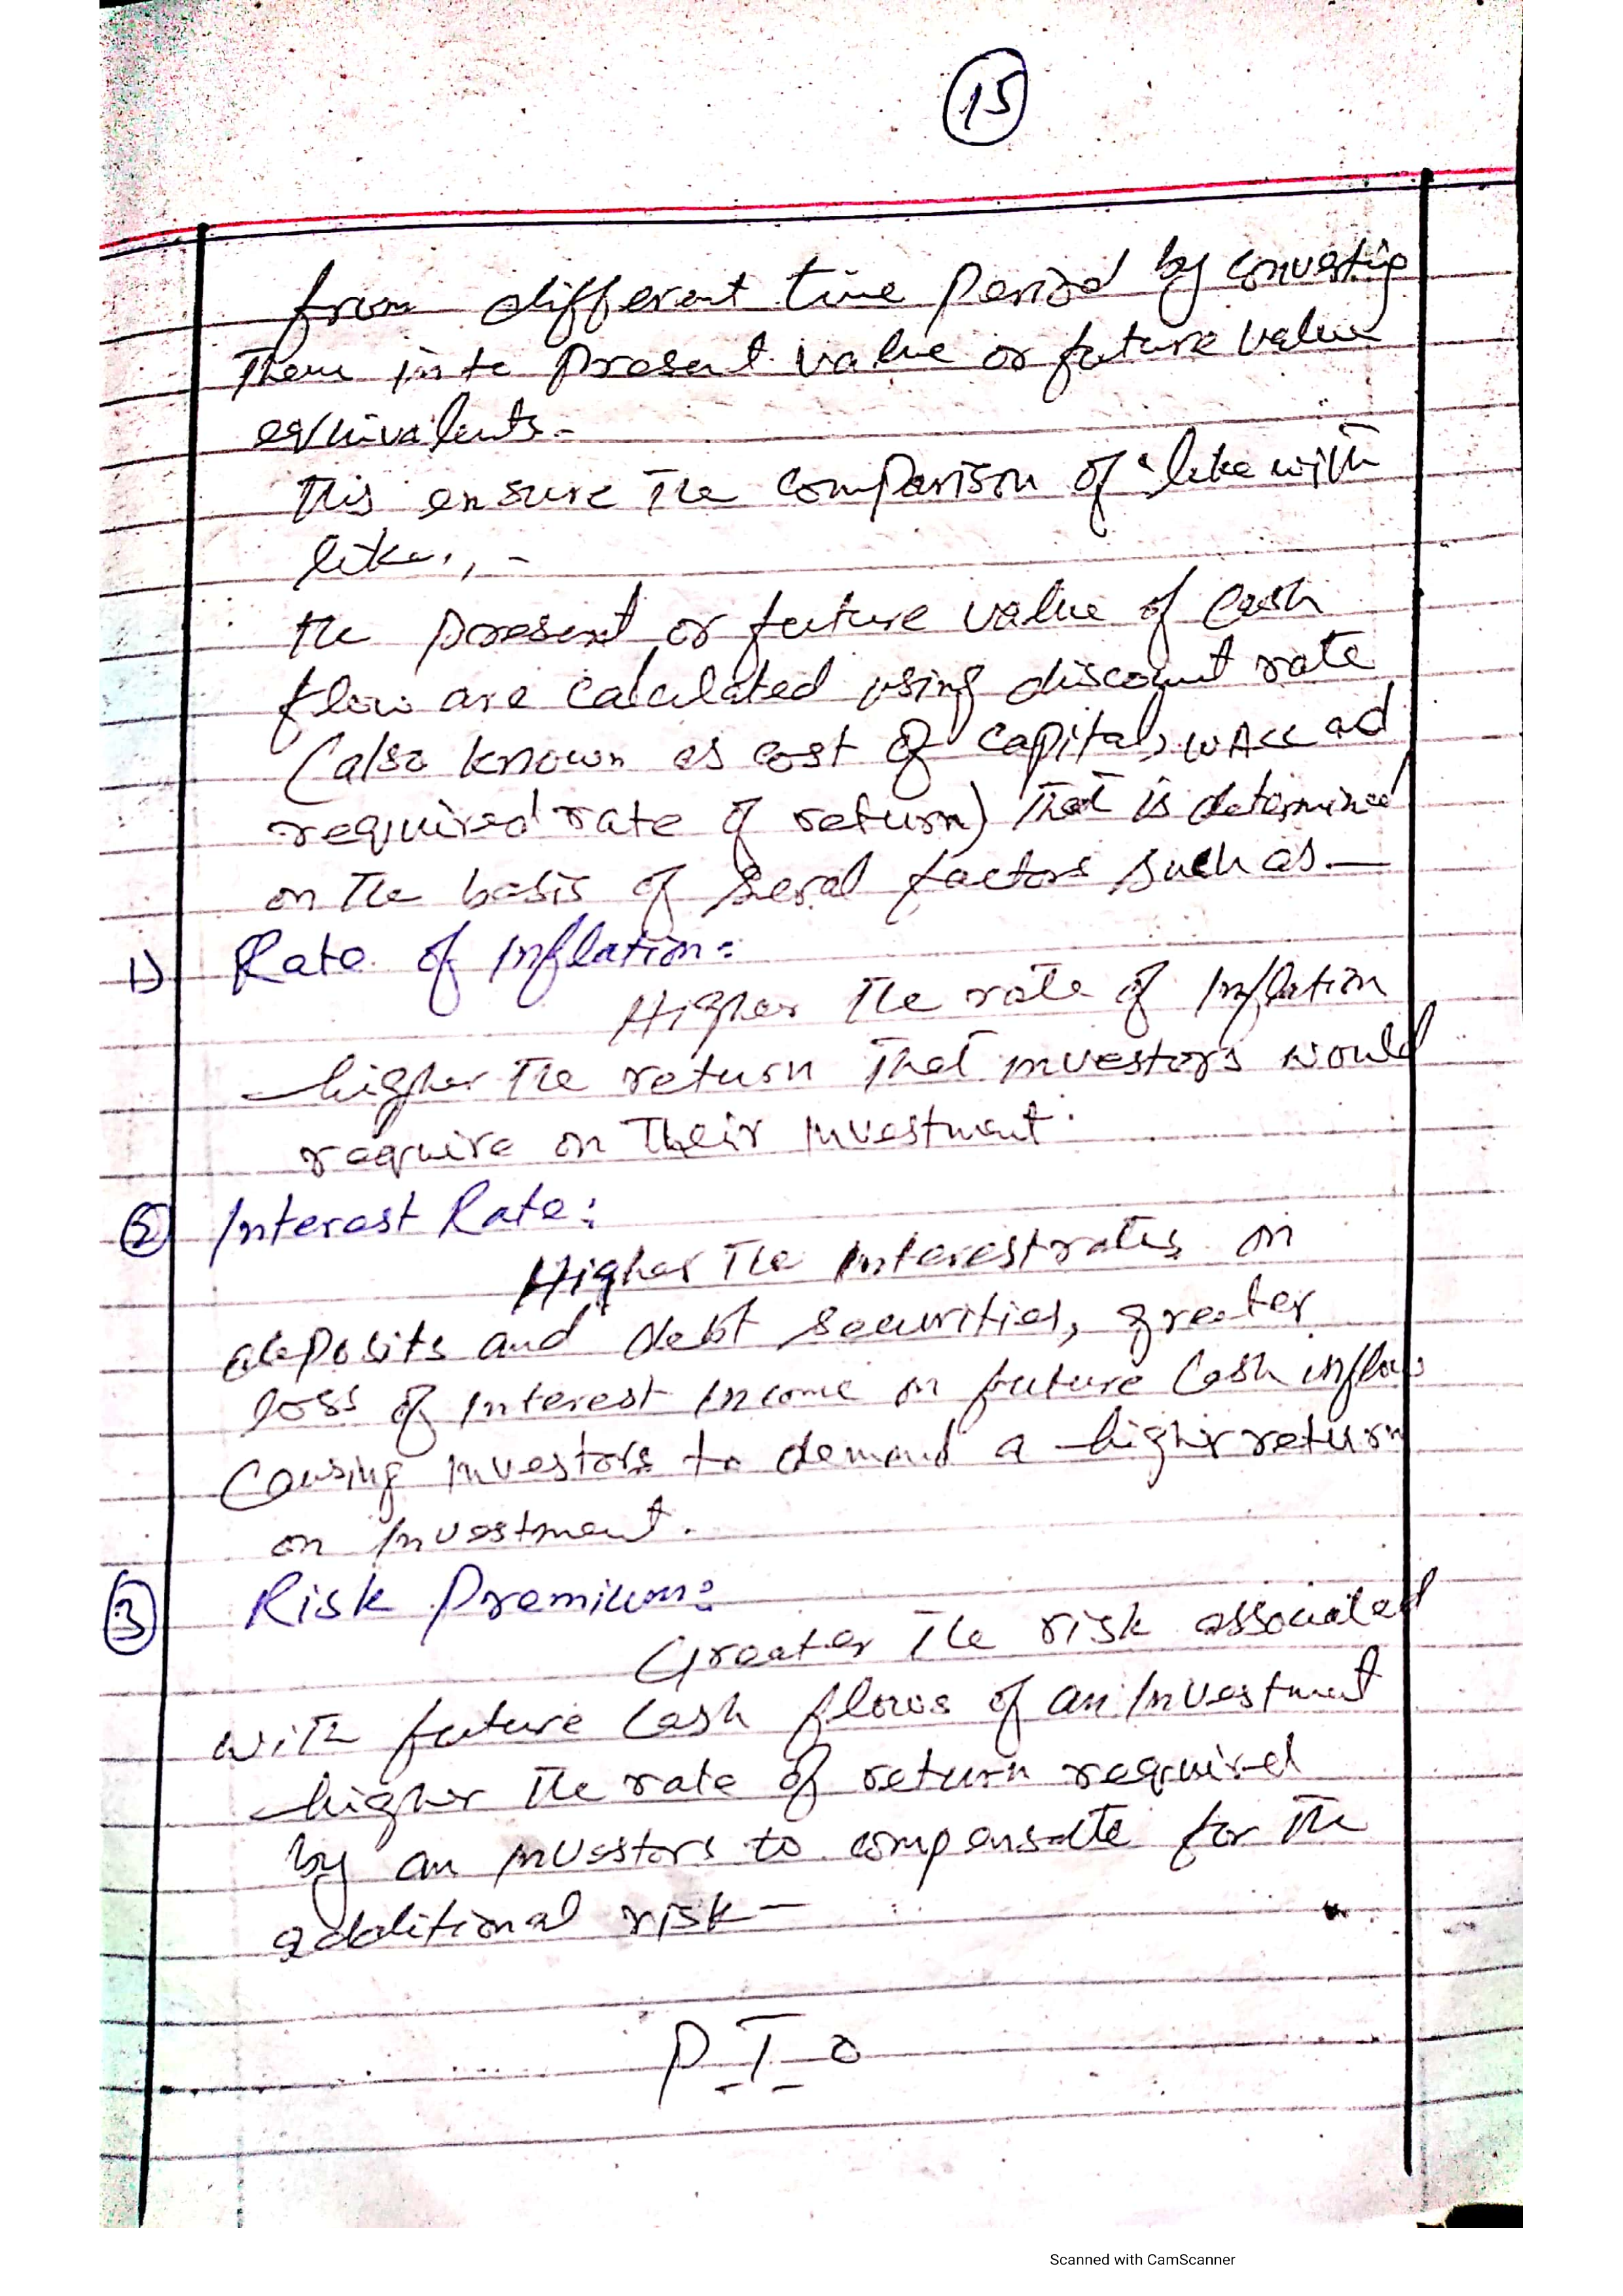 15
from different time period by converting
them into present value or future value
equivalents-
this ensure the comparison of 'like with
like', -
the present or future value of cash
flow are calculated using discount rate
(also known as cost of capital, WACC ad
required rate of return) that is determined
on the basis of seral factors such as—
1) Rate of Inflation:
Higher the rate of Inflation
higher the return that investors would
require on their investment.
2 Interest Rate:
Higher the interest rates on
deposits and debt securities, greater
loss of interest income on future cash inflows
causing investors to demand a higher return
on investment.
3 Risk Premium:
Greater the risk associated
with future cash flows of an investment
higher the rate of return required
by an investors to compensate for the
additional risk-
P T O
Scanned with CamScanner